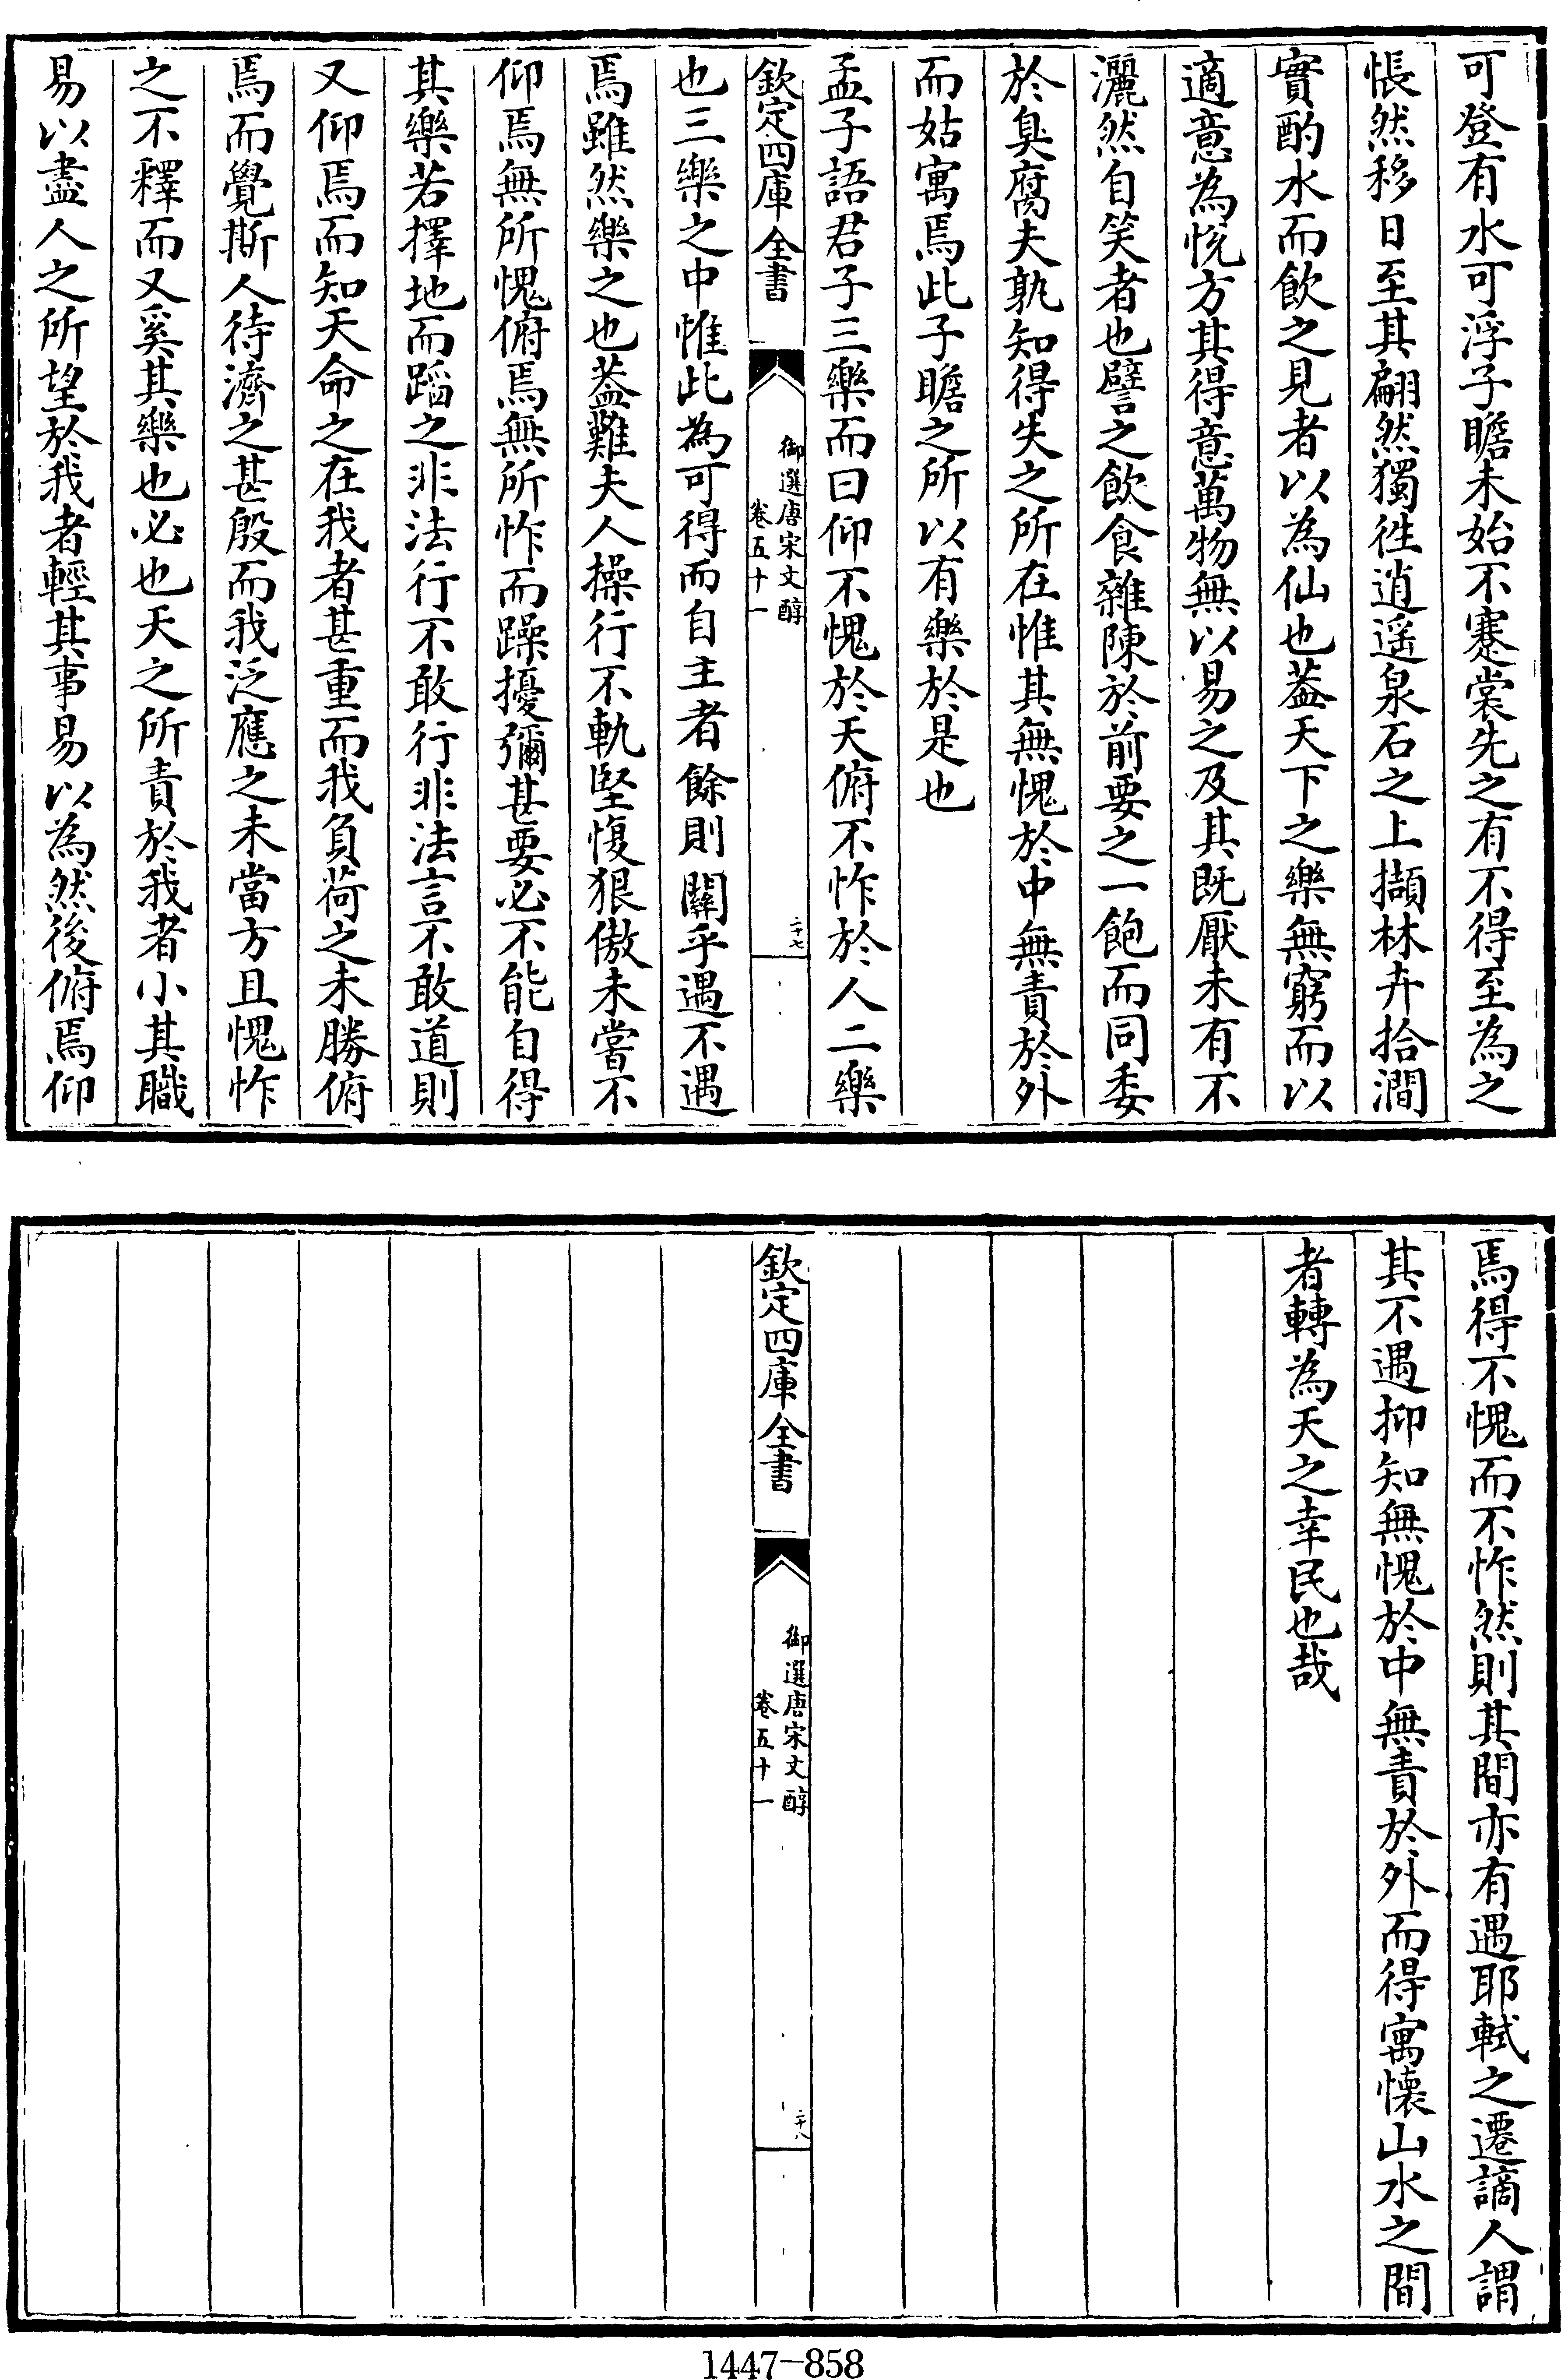 可登有水可浮子瞻未始不蹇裳先之有不得至為之
悵然移日至其翩然獨徃逍遥泉石之上擷林卉拾澗
實酌水而飲之見者以為仙也葢天下之樂無窮而以
適意為恱方其得意萬物無以易之及其既厭未有不
灑然自笑者也譬之飲食雜陳於前要之一飽而同委
於臭腐夫孰知得失之所在惟其無愧於中無責於外
而姑寓焉此子瞻之所以有樂於是也
孟子語君子三樂而曰仰不愧於天俯不怍於人二樂
欽定四庫全書
御選唐宋文醇
卷五十一
二十七
也三樂之中惟此為可得而自主者餘則關乎遇不遇
焉雖然樂之也葢難夫人操行不軌堅愎狠傲未嘗不
仰焉無所愧俯焉無所怍而躁擾彌甚要必不能自得
其樂若擇地而蹈之非法行不敢行非法言不敢道則
又仰焉而知天命之在我者甚重而我負荷之未勝俯
焉而覺斯人待濟之甚殷而我泛應之未當方且愧怍
之不釋而又奚其樂也必也天之所責於我者小其職
易以盡人之所望於我者輕其事易以為然後俯焉仰
焉得不愧而不怍然則其間亦有遇耶軾之遷謫人謂
其不遇抑知無愧於中無責於外而得寓懐山水之間
者轉為天之幸民也哉
欽定四庫全書
御選唐宋文醇
卷五十一
二十八
1447-858